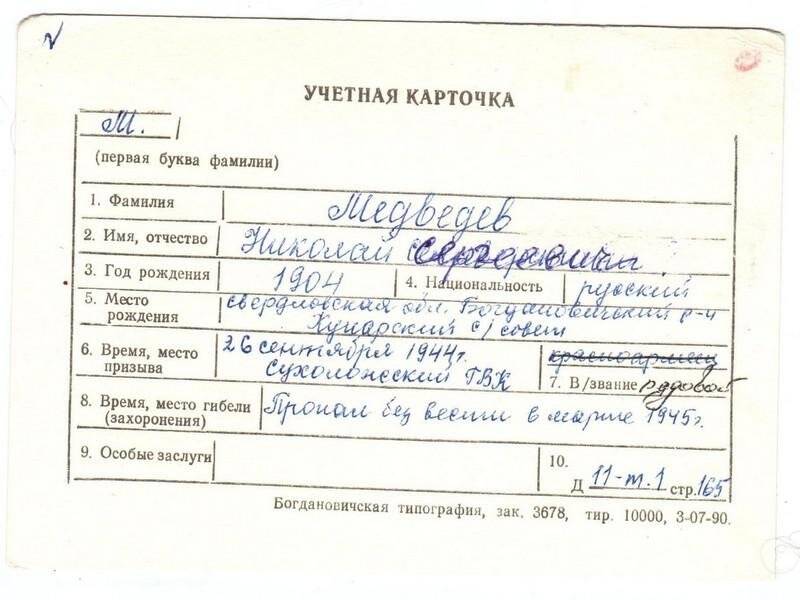 УЧЕТНАЯ КАРТОЧКА
М.
(первая буква фамилии)
1. Фамилия Медведев
2. Имя, отчество Николай
3. Год рождения 1904 4. Национальность русский
5. Место рождения свердловская обл. Богдановичский р-н
Кунарский с/совет
6. Время, место призыва 26 сентября 1944г.
Сухоложский ГВК
красноармеец
7. В/звание рядовой
8. Время, место гибели (захоронения) Пропал без вести в марте 1945г.
9. Особые заслуги
10.
Д 11-т.1 стр.165
Богдановичская типография, зак. 3678, тир. 10000, 3-07-90.